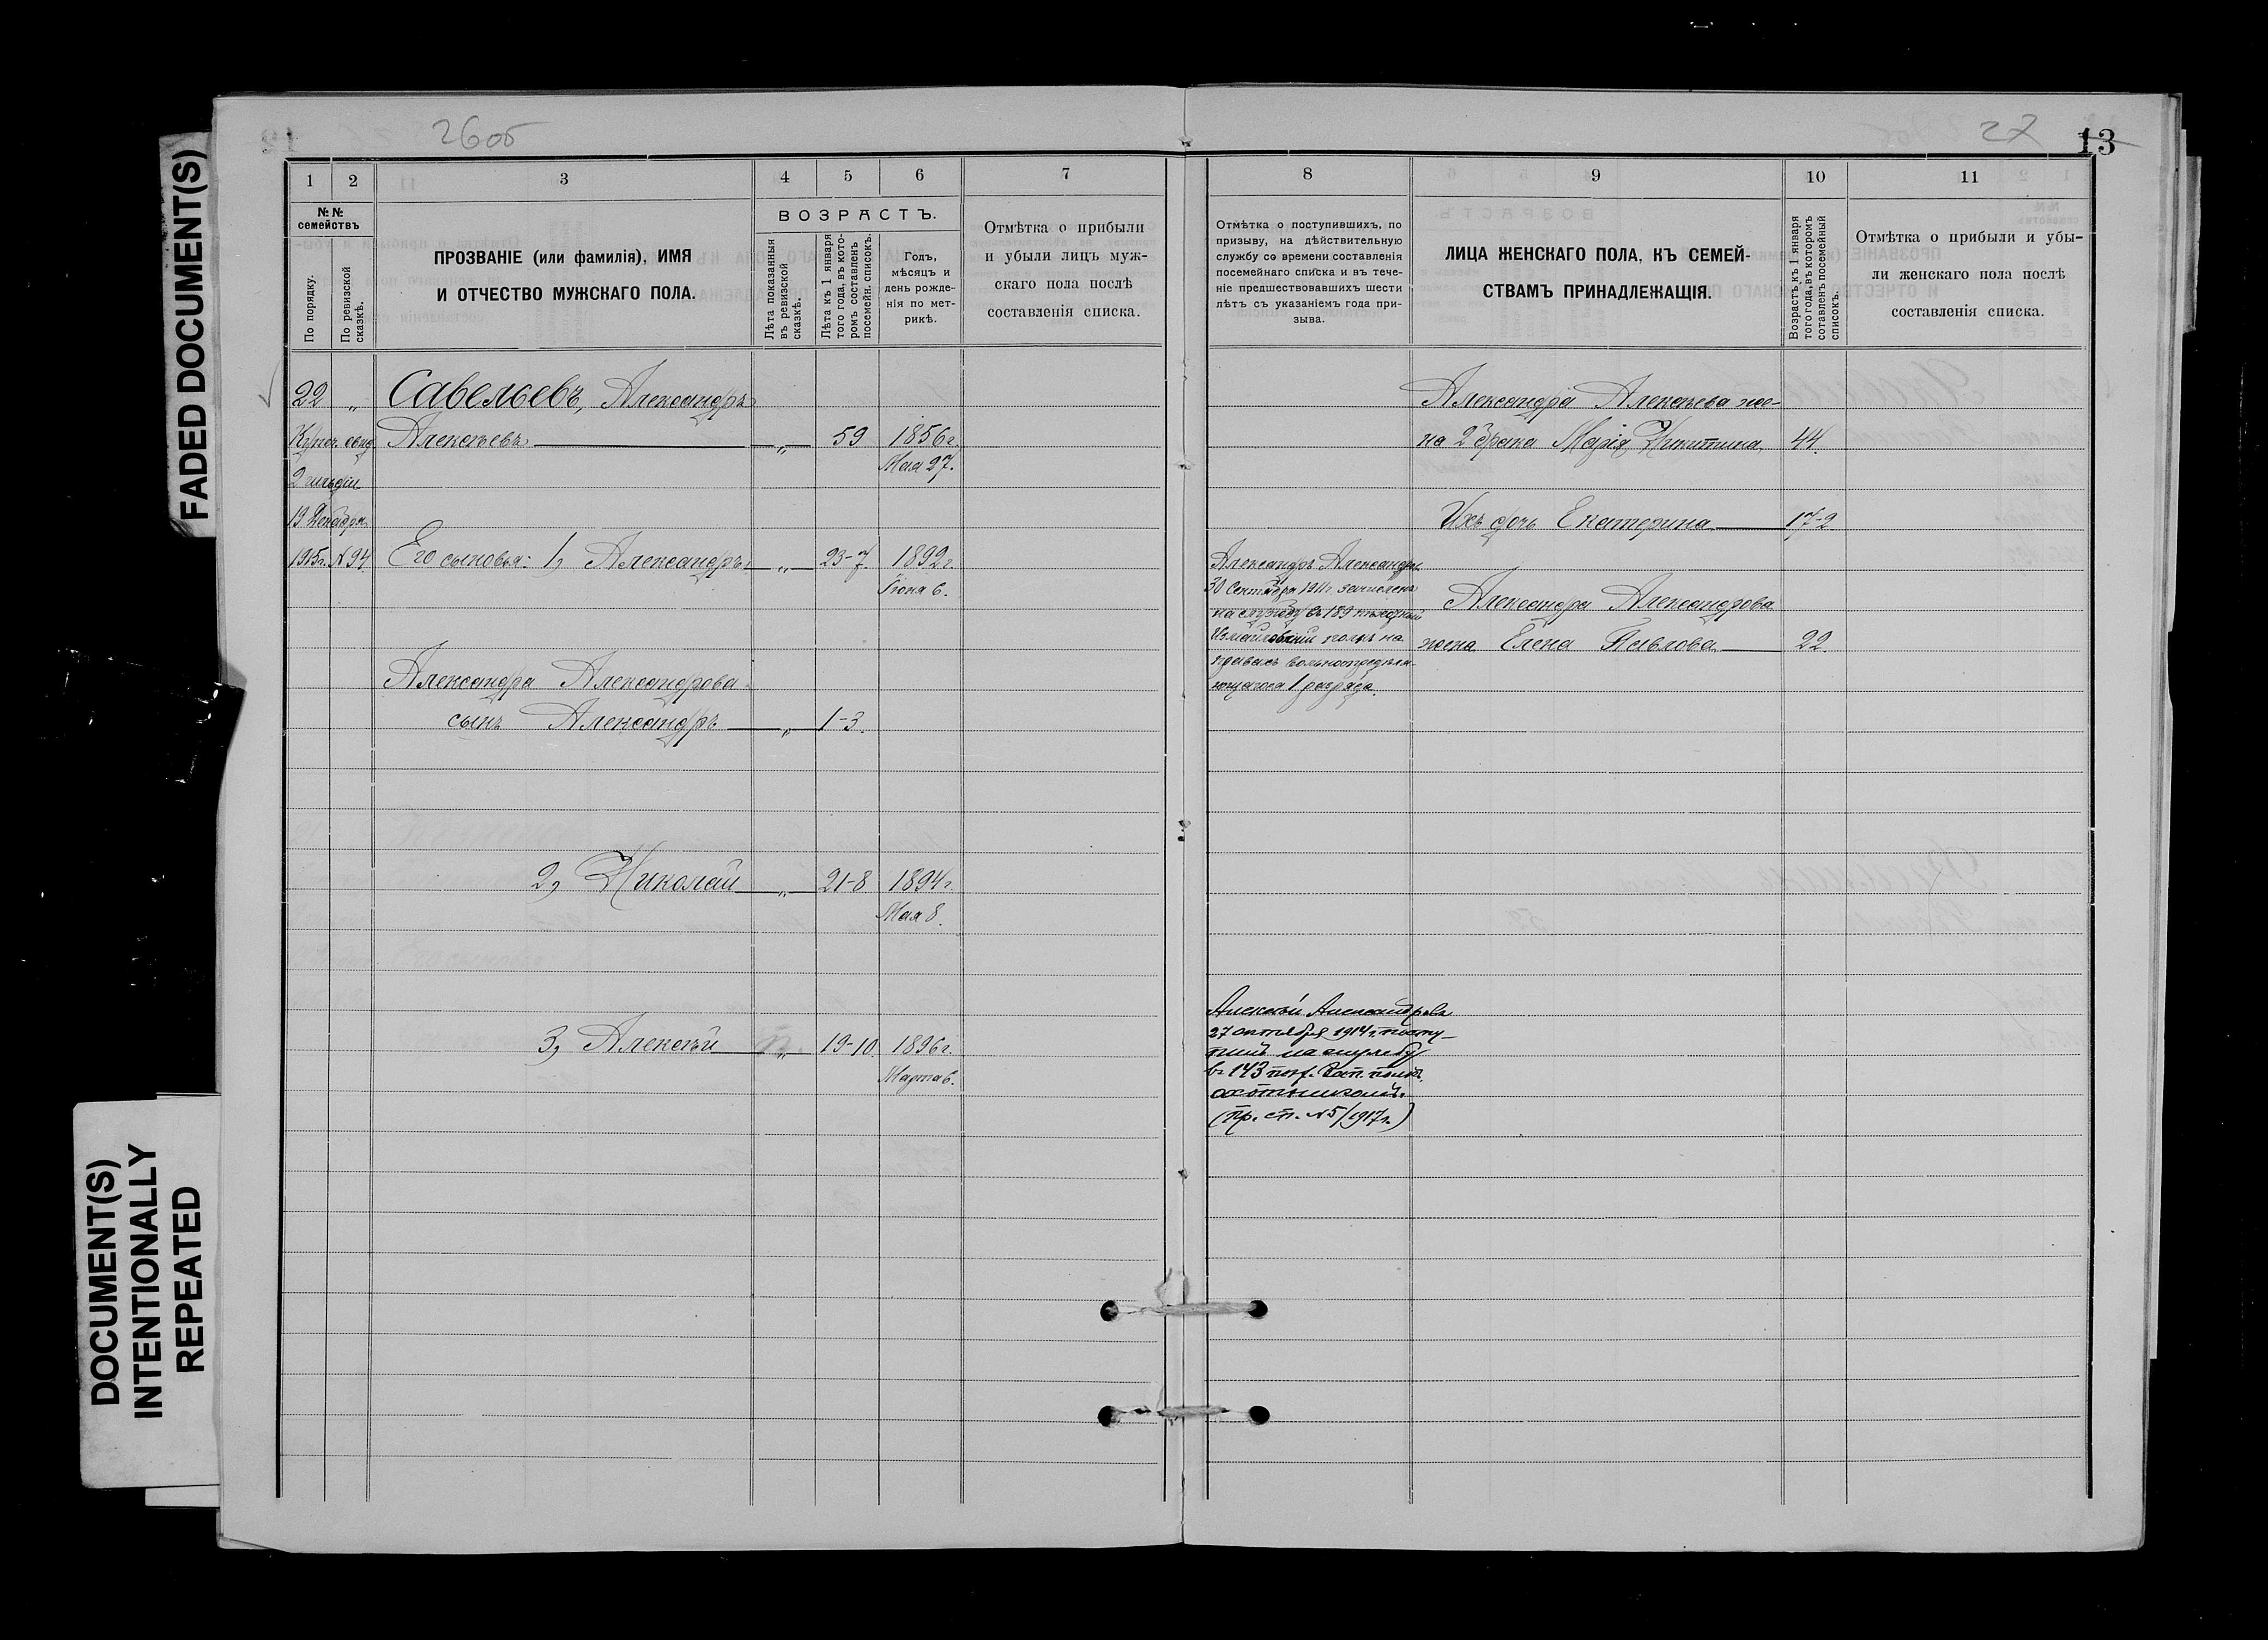 FADED DOCUMENT(S)
DOCUMENT(S)
INTENTIONALLY
REPEATED
26об
1
2
3
4
5
6
7
№№
семействъ
По порядку.
По ревизской
сказкѣ.
ПРОЗВАНІЕ (или фамилія), ИМЯ
И ОТЧЕСТВО МУЖСКАГО ПОЛА.
ВОЗРАСТЪ.
Лѣта показанныя
въ ревизской
сказкѣ.
Лѣта къ 1 января
того года, въ кото-
ромъ составленъ
посемейн. списокъ.
Годъ,
мѣсяцъ и
день рожде-
нія по мет-
рикѣ.
Отмѣтка о прибыли
и убыли лицъ муж-
скаго пола послѣ
составленія списка.
22 „ Савельевъ, Александръ
Купеч. свид. Алексѣевъ „ 59 1856 г.
2 гильдіи Мая 27.
19 Декабря
1915г. №94 Его сыновья: 1, Александръ „ 23-7. 1892 г.
Іюня 6.
Александра Александрова
сынъ Александръ „ 1-3.
2, Николай „ 21-8 1894 г.
Мая 8.
3, Алексѣй „ 19-10. 1896 г.
Марта 6.
27
13
8
9
10
11
Отмѣтка о поступившихъ, по
призыву, на дѣйствительную
службу со времени составленія
посемейнаго списка и въ тече-
ніе предшествовавшихъ шести
лѣтъ съ указаніемъ года при-
зыва.
ЛИЦА ЖЕНСКАГО ПОЛА, КЪ СЕМЕЙ-
СТВАМЪ ПРИНАДЛЕЖАЩІЯ.
Возрастъ къ 1 января
того года, въ которомъ
составленъ посемейный
списокъ.
Отмѣтка о прибыли и убы-
ли женскаго пола послѣ
составленія списка.
Александра Алексѣева же-
на 2 брака Марія Никитина 44.
Ихъ дочь Екатерина 17-2
Александръ Александр.
30 Сентября 1911г. зачисленъ
на службу въ 189 пѣхотный
Измаильскій полкъ на
правахъ вольноопредѣля-
ющагося 1 разряда.
Александра Александрова
жена Елена Павлова 22.
Алексѣй Александровъ
27 октября 1914 г. посту-
пилъ на службу
въ 143 пѣх. полкъ
охотникомъ.
(Пр. ст. №5/1917г.)